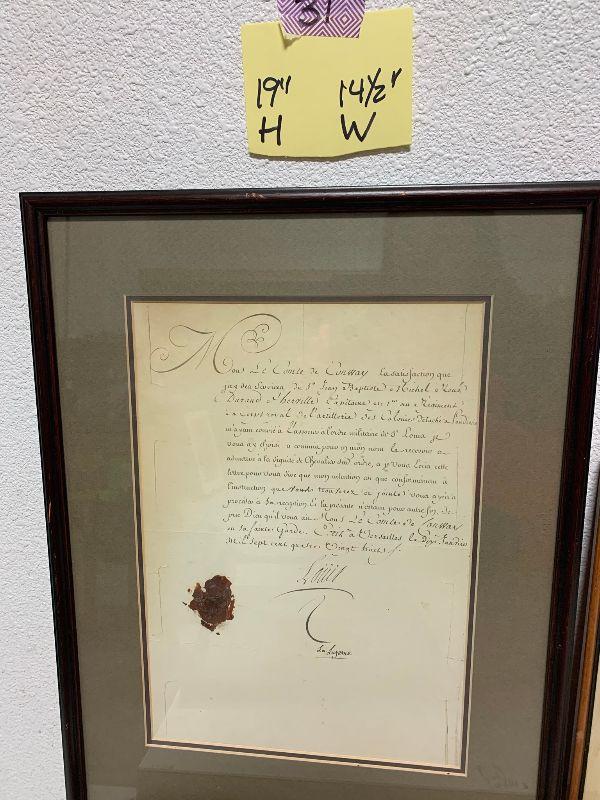 31
19" 14½"
H W
Mons Le Comte de Conway la satisfaction que
j'ay des services de Sr Jean Baptiste Michel Noel
Durand d'herville Capitaine en 1er au Regiment
du Corps royal de l'artillerie des Colonies detaché a
m'ayant convié à l'associer a l'ordre militaire de St Louis je
vous ay choisi et commis pour en mon nom le recevoir et
admettre à la dignité de Chevalier dud. ordre, et je vous Ecris cette
lettre pour vous dire que mon intention est que conformement à
l'instruction que vous trouverez cy jointe vous ayiez à
proceder à sa reception. Et la presente n'etant pour autre fin, Je
prie Dieu qu'il vous ait Mons Le Comte de Conway
en sa sainte Garde. Ecrit à Versailles le Janvier
Mil Sept cent quatre Vingt huit /.
Louis
La Luzerne